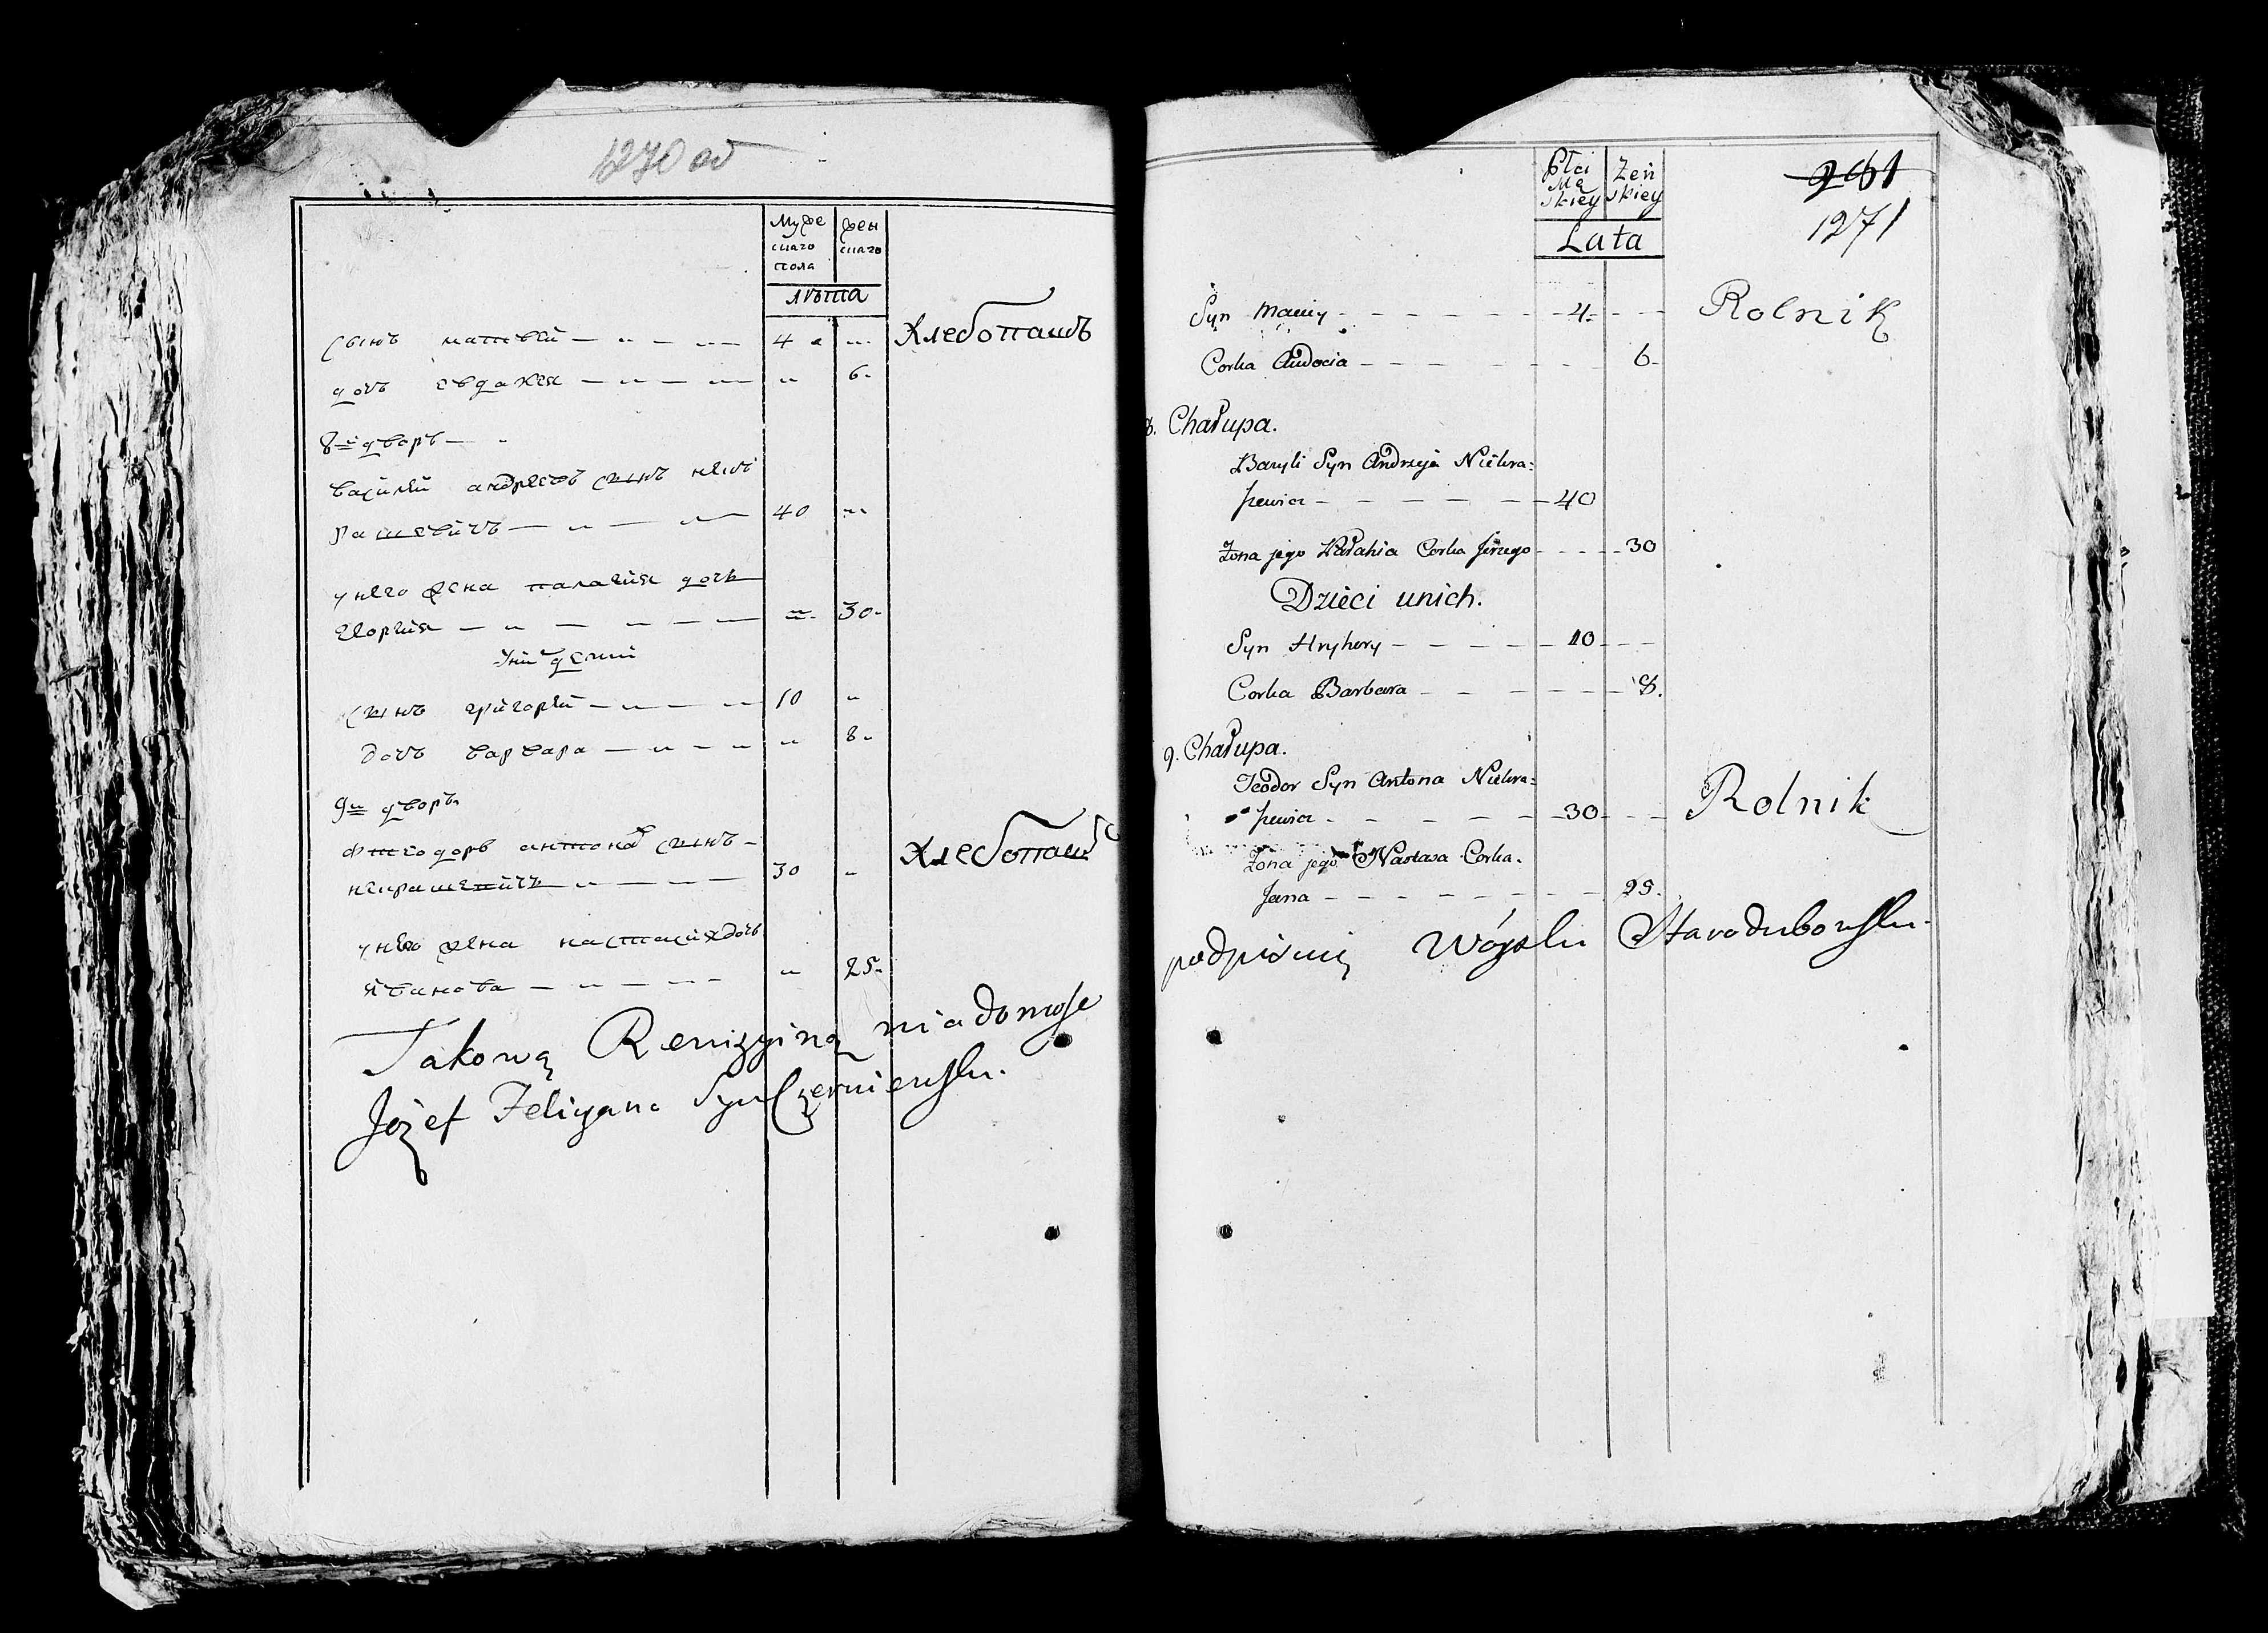 1270 об
Муже
скаго
пола
жен
скаго
лѣта
сынъ матвей 4 Хлебопашъ
дочь евдакея 6
8й дворъ
василей андреевъ сынъ некъ
рашевичъ 40
у него жена палагея дочь
егоргия 30
У ни дети
сынъ григорей 10
дочь варвара 8
9й дворъ
фтеодоръ антоновъ сынъ
некрашевичъ 30 Хлебопашъ
у него жена настасия дочь
иванова 25
Takową Rewizyiną wiadomość
Jozef Felicyana Syn Czerniewski
Płci
Mę
skiey
Żeń
skiey
Lata
261
1271
Syn Maciey 4 Rolnik
Corka Audocia 6
8. Chałupa.
Bazyli Syn Andrzeja Niekra=
szewicz 40
Żona jego Pałahia Corka Jerzego 30
Dzieci unich.
Syn Hryhory 10
Corka Barbara 8.
9. Chałupa.
Teodor Syn Antona Niekra=
szewicz 30 Rolnik
Żona jego Nastasa Corka
Jana 25.
podpisuię Wóyski Starodubowski